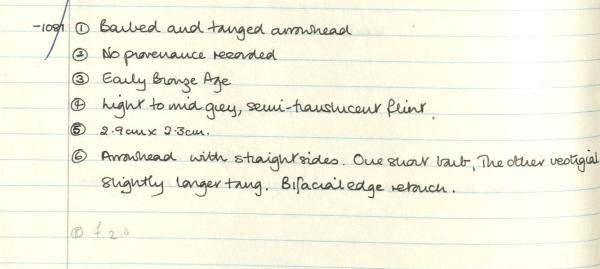 -1081 ① Barbed and tanged arrowhead
② No provenance recorded
③ Early Bronze Age
④ Light to mid grey, semi-translucent flint.
⑤ 2.9cm x 2.3cm.
⑥ Arrowhead with straight sides. One short barb, The other vestigial
slightly longer tang. Bifacial edge retouch.
⑧ £ 2.